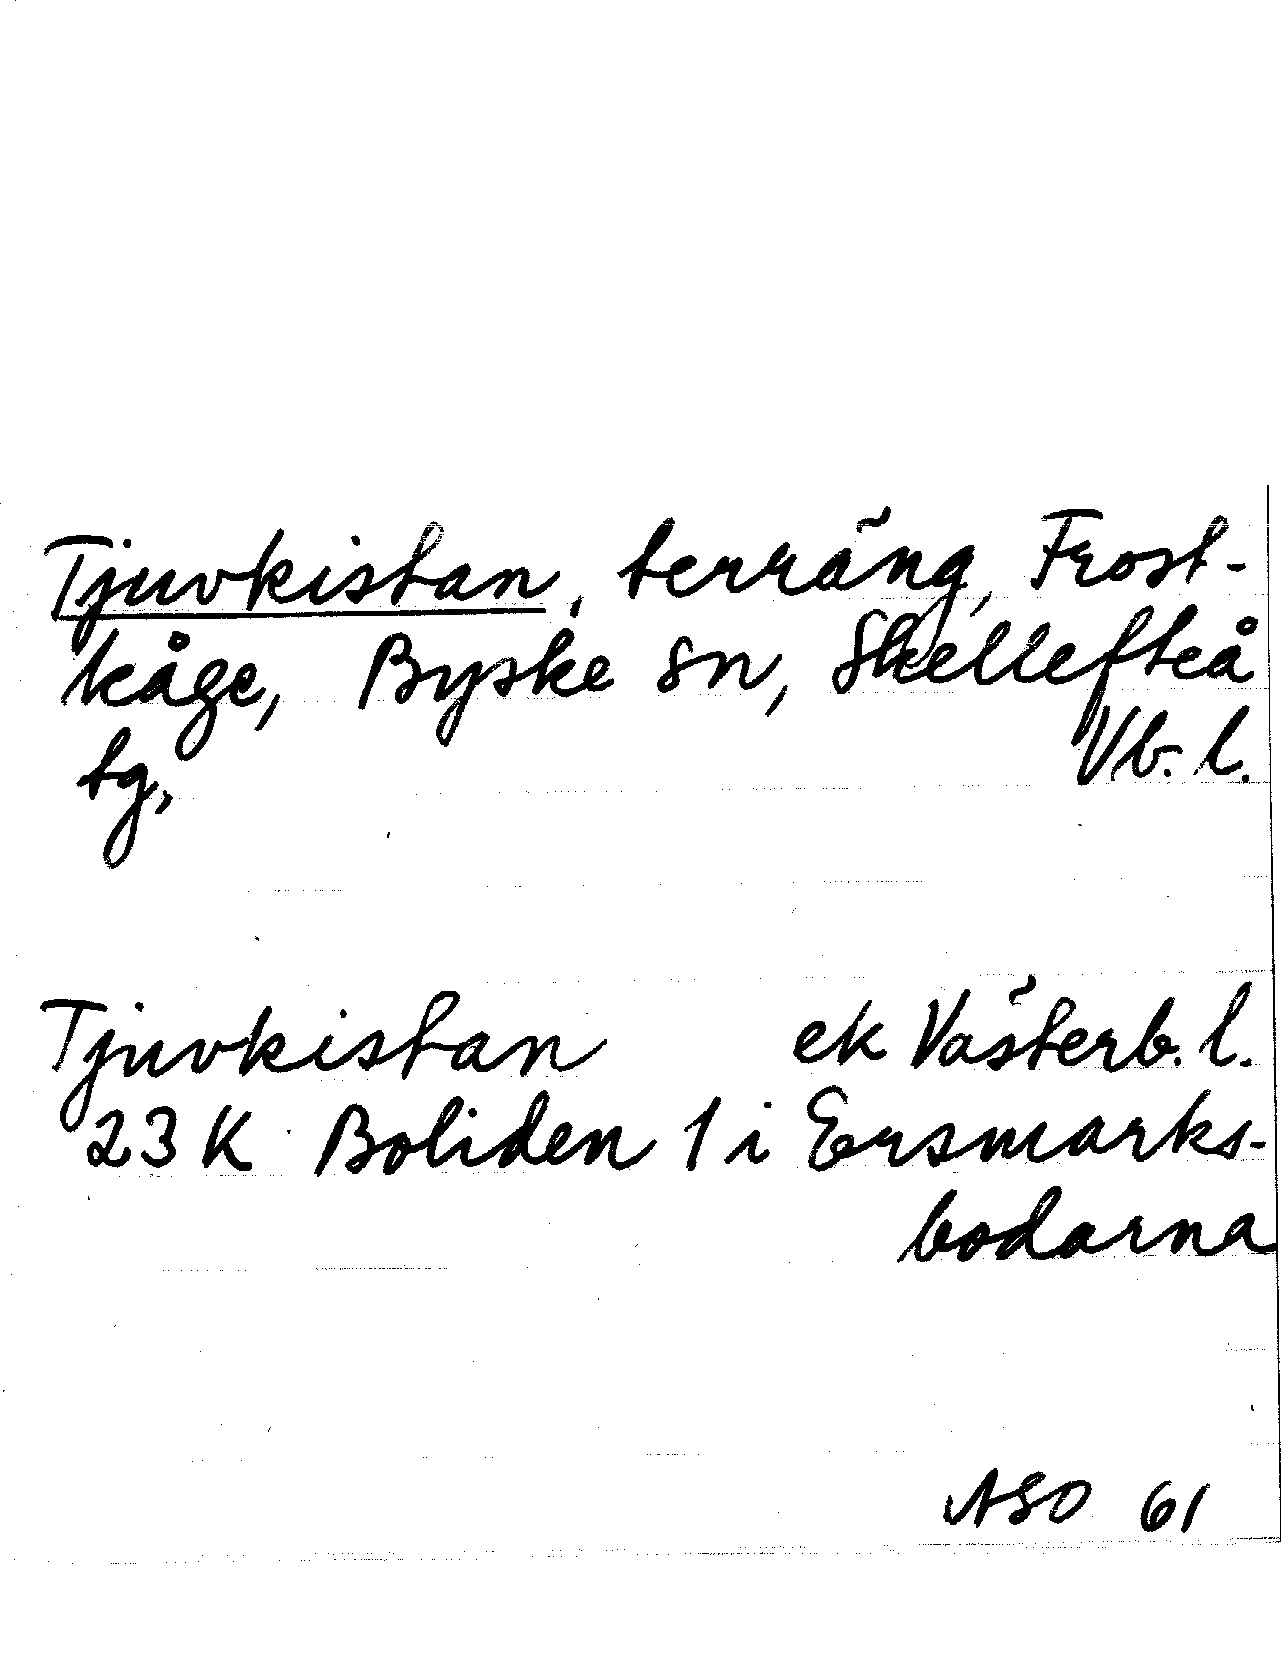 Tjuvkistan, terräng, Frost-
kåge, Byske sn, Skellefteå
tg, Vb. l.
Tjuvkistan ek Västerb. l.
23 K Boliden 1 i Ersmarks-
bodarna
ASO 61